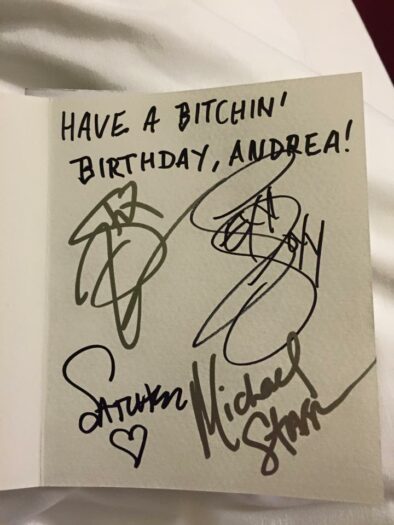 HAVE A BITCHIN'
BIRTHDAY, ANDREA!
Stix
Foxx
SATCHEL
Michael
Starr